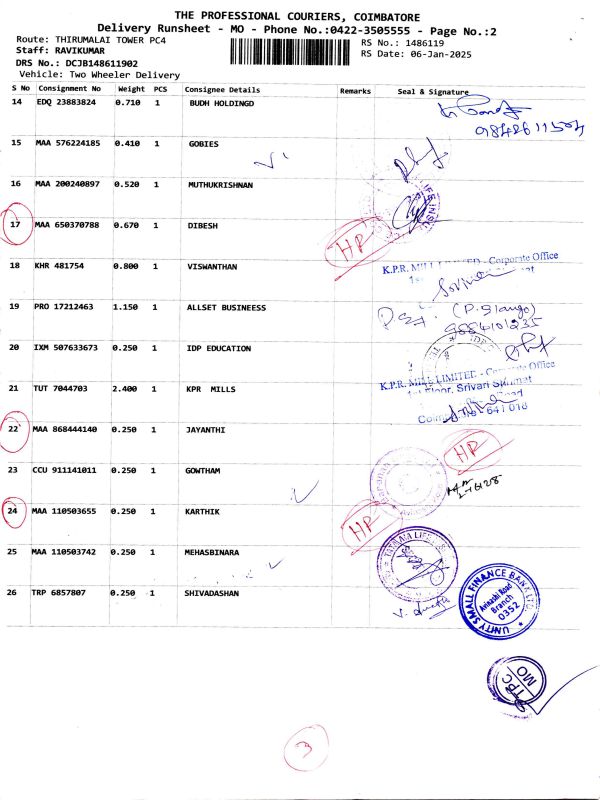 THE PROFESSIONAL COURIERS, COIMBATORE
Delivery Runsheet - MO - Phone No.:0422-3505555 - Page No.:2
Route: THIRUMALAI TOWER PC4 RS No.: 1486119
Staff: RAVIKUMAR RS Date: 06-Jan-2025
DRS No.: DCJB148611902
Vehicle: Two Wheeler Delivery
S No Consignment No Weight PCS Consignee Details Remarks Seal & Signature
14 EDQ 23883824 0.710 1 BUDH HOLDINGD
9842611504
15 MAA 576224185 0.410 1 GOBIES
16 MAA 200240897 0.520 1 MUTHUKRISHNAN
17 MAA 650370788 0.670 1 DIBESH
HP
18 KHR 481754 0.800 1 VISWANTHAN K.P.R. MILL LIMITED - Corporate Office
19 PRO 17212463 1.150 1 ALLSET BUSINEESS (P. Slango)
9884101235
20 IXM 507633673 0.250 1 IDP EDUCATION
21 TUT 7044703 2.400 1 KPR MILLS K.P.R. MILL LIMITED - Corporate Office
1st Floor, Srivari Shrimat
641 018
22 MAA 868444140 0.250 1 JAYANTHI
HP
23 CCU 911141011 0.250 1 GOWTHAM
24 MAA 110503655 0.250 1 KARTHIK
HP
25 MAA 110503742 0.250 1 MEHASBINARA
26 TRP 6857807 0.250 1 SHIVADASHAN
UNITY SMALL FINANCE BANK LTD.
Avinashi Road
Branch
0352
TPC
MO
3